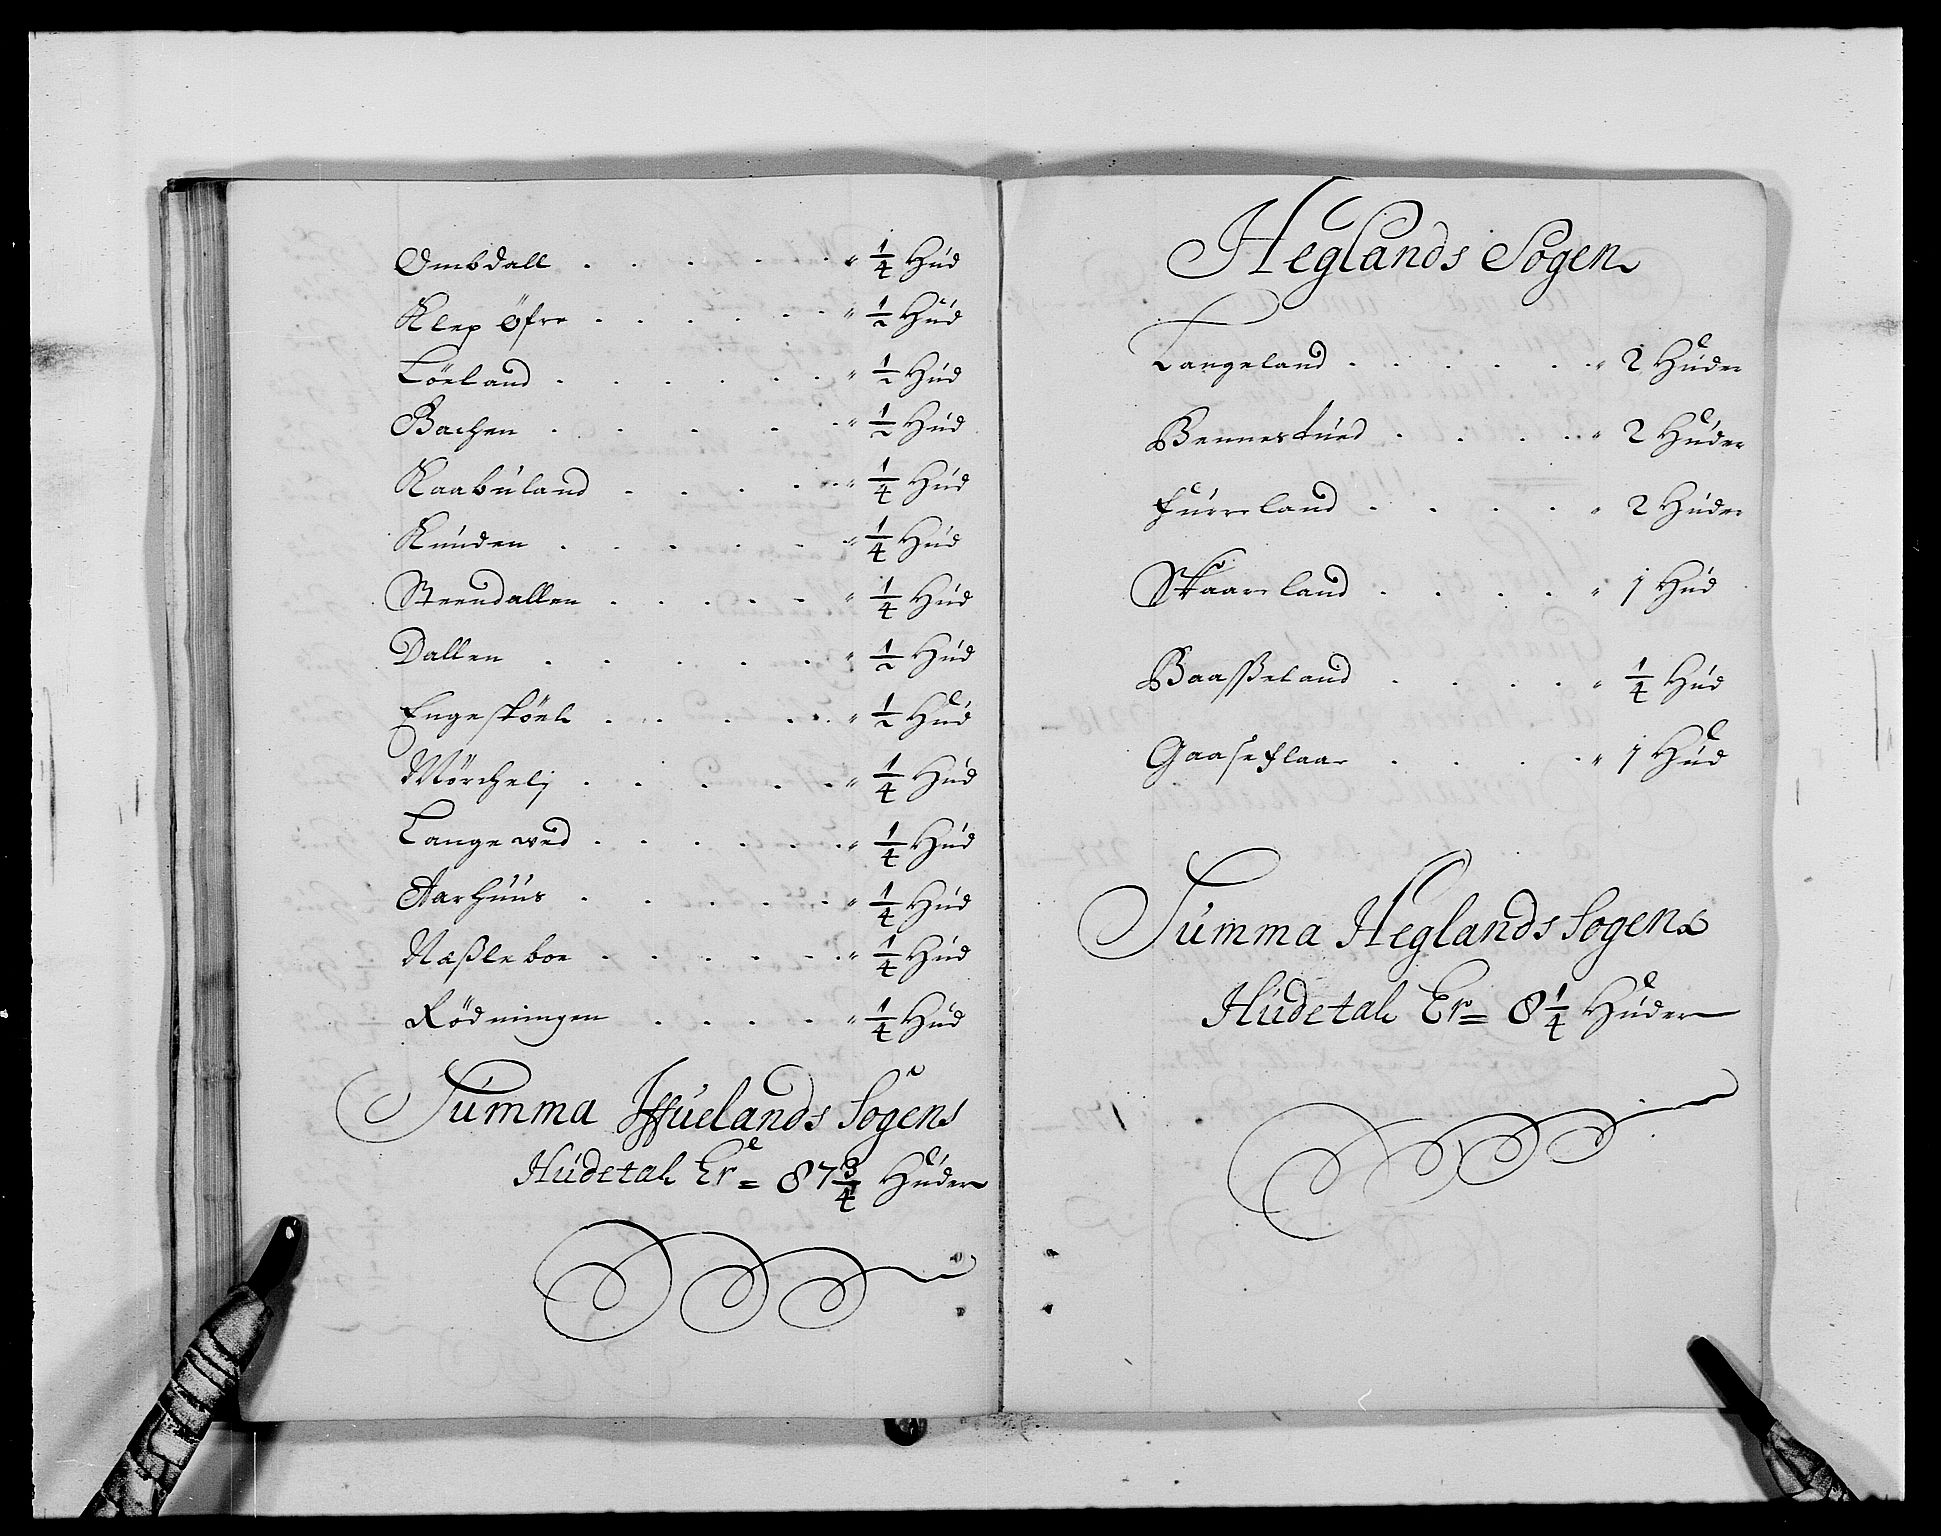 Ombdall . . . . . . " 1/4 Hud
Klep Öfre . . . . . . " 1/2 Hud
Löeland . . . . . . " 1/2 Hud
Bachen . . . . . " 1/2 Hud
Kaabuland . . . . . " 1/4 Hud
Kunden . . . . . " 1/4 Hud
Steendallen . . . . . " 1/4 Hud
Dallen . . . . . " 1/2 Hud
Engesköel . . . . . " 1/2 Hud
Mörchelj . . . . . " 1/4 Hud
Langewed . . . . . . " 1/4 Hud
Aarhuus . . . . . " 1/4 Hud
Næßleboe . . . . . " 1/4 Hud
Rödningen . . . . " 1/4 Hud
Summa Sogens
Hudetal Er = 87 3/4 Huder
Heglands Sogen
Langeland . . . . . " 2 Huder
Bennestued . . . . " 2 Huder
Furreland . . . . " 2 Huder
Skaareland . . . . " 1 Hud
Baaßeland . . . . " 1/4 Hud
Gaaseflaae . . . . " 1 Hud
Summa Heglands Sogens
Hudetal Er = 8 1/4 Huder